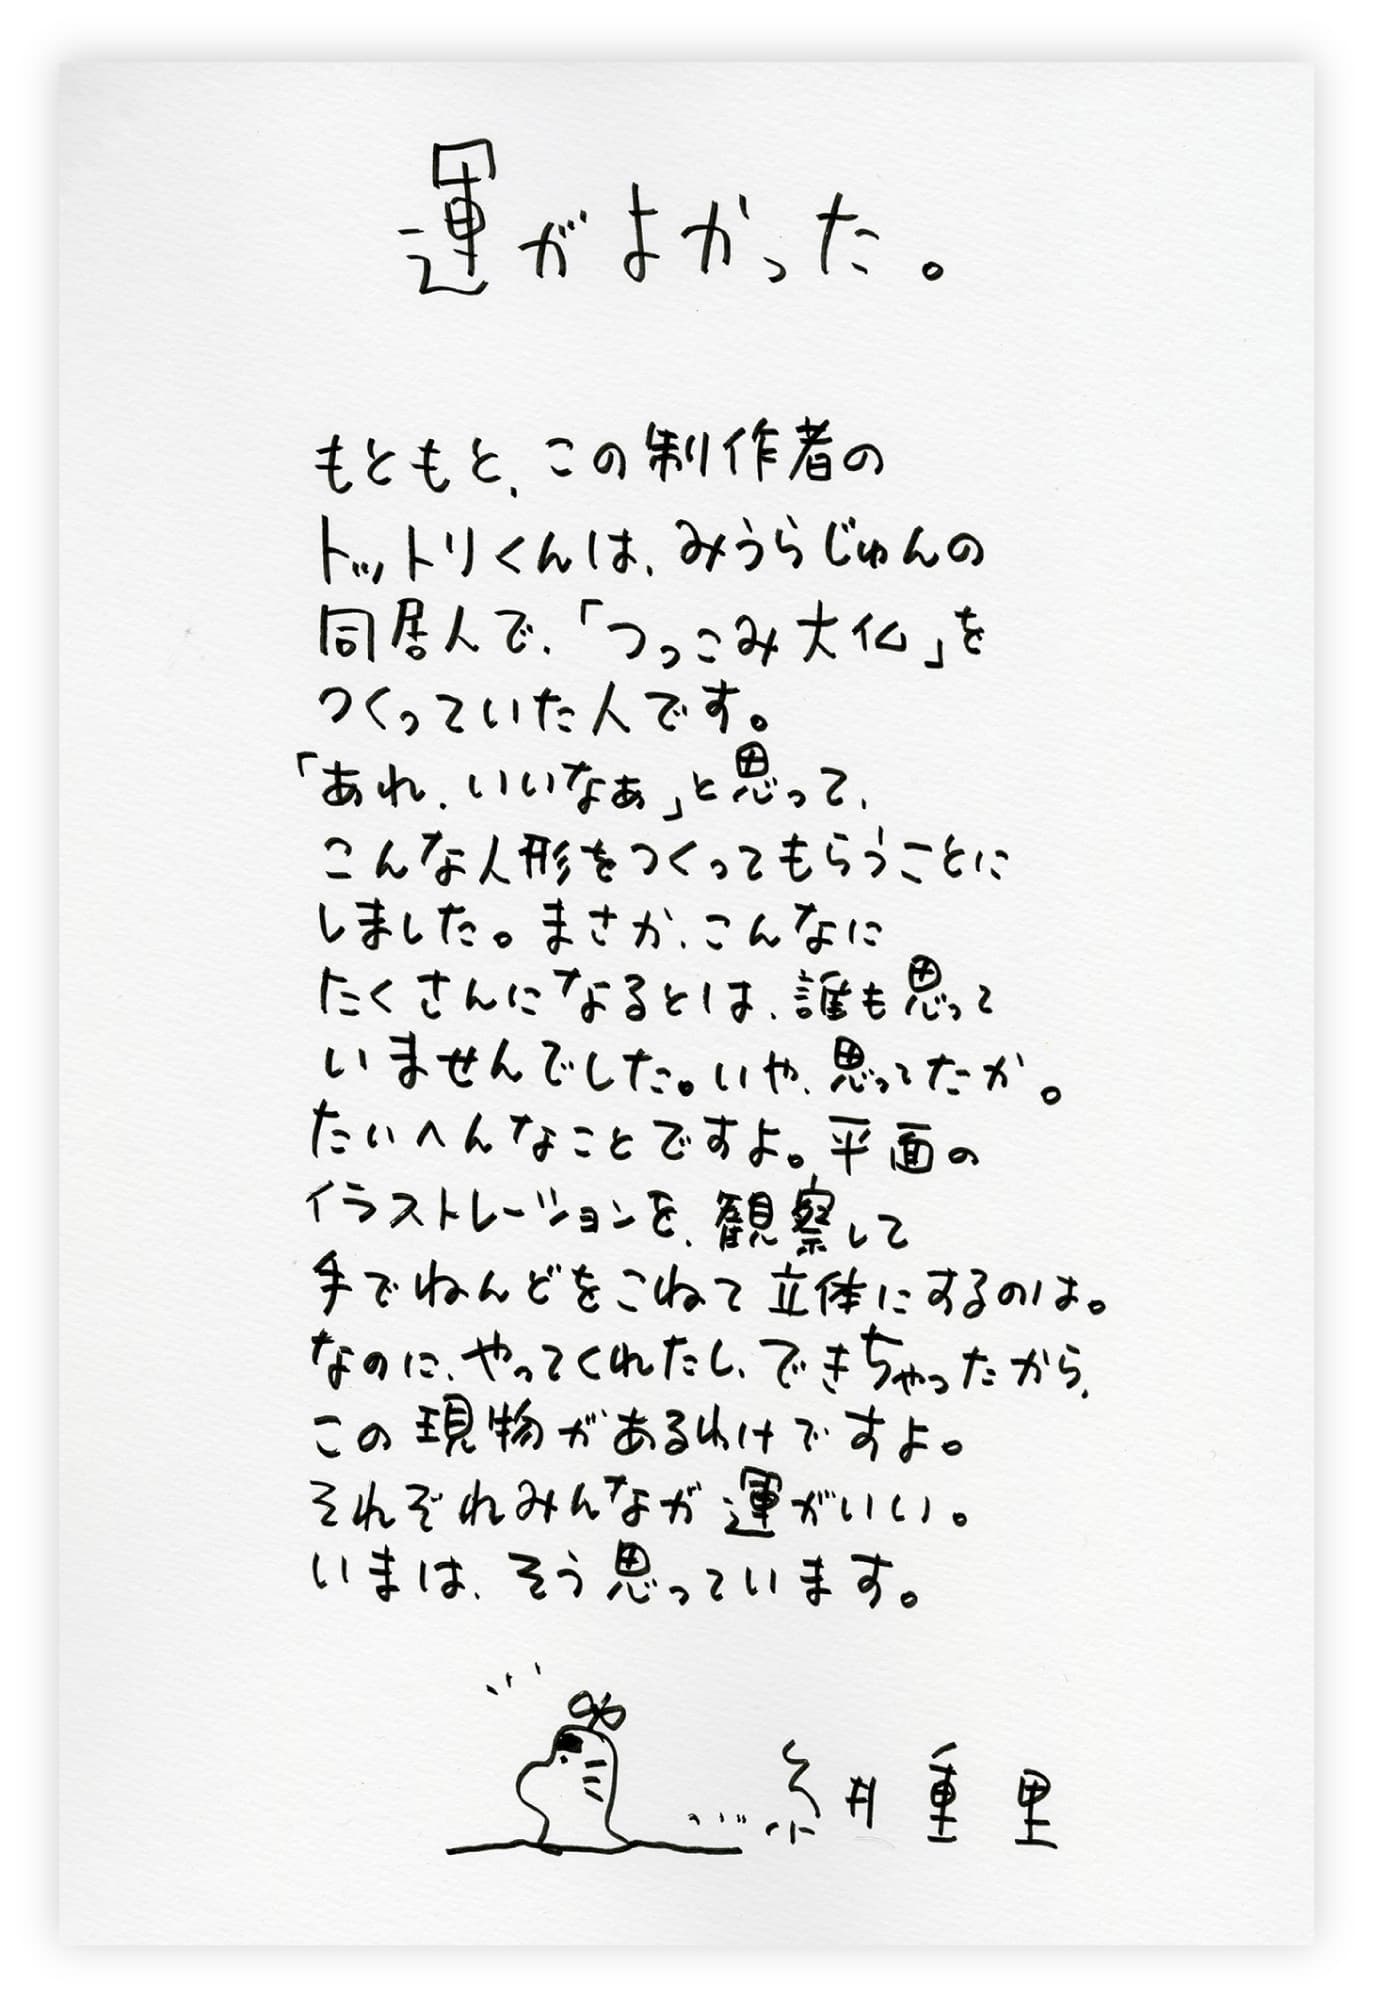 運がよかった。
もともと、この制作者の
トットリくんは、みうらじゅんの
同居人で、「つっこみ大仏」を
つくっていた人です。
「あれ、いいなぁ」と思って、
こんな人形をつくってもらうことに
しました。まさか、こんなに
たくさんになるとは、誰も思って
いませんでした。いや、思ってたか。
たいへんなことですよ。平面の
イラストレーションを、観察して
手でねんどをこねて立体にするのは。
なのに、やってくれたし、できちゃったから、
この現物があるわけですよ。
それぞれみんなが運がいい。
いまは、そう思っています。
糸井重里